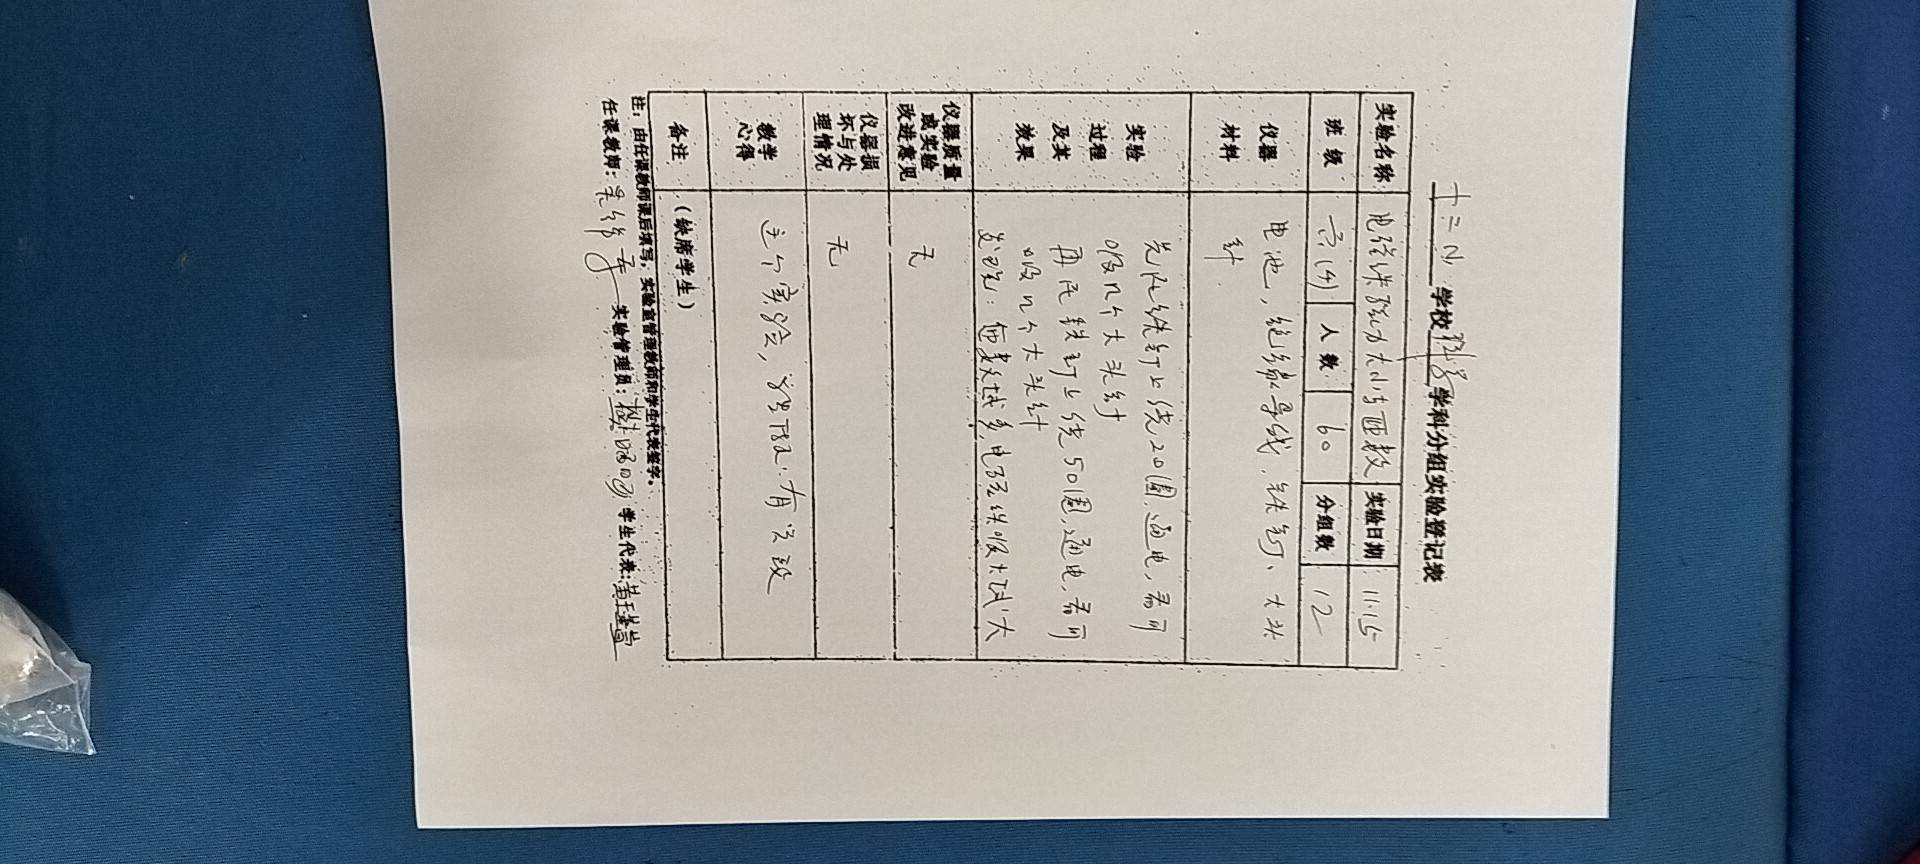 十二小学校科学学科分组实验登记表
实验名称 电磁铁磁力大小与匝数 实验日期 11.15
班级 六(4) 人数 60 分组数 12
仪器材料 电池,绝缘导线、铁钉、大头针.
实验过程及其效果 先在铁钉上绕20圈,通电,看可
吸几个大头针
再在铁钉上绕50圈,通电,看可
吸几个大头针
发现:匝数越多,电磁铁吸力越大
仪器质量或实验改进意见 无
仪器损坏与处理情况 无
教学心得 这个实验,学生
备注 (缺席学生)
注:由任课教师课后填写,实验室管理教师和学生代表签字。
任课教师: 实验管理员: 学生代表: